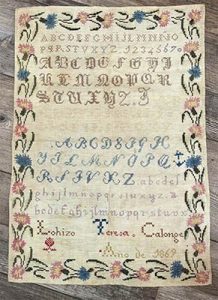 ABCDEFGHIJLMNO
PQRSTVXYZ.1234567890
ABCDEFGHIJ
KLMNOPQR
STUXYZ.J
ABCDEFGH
YJLMNOPQ
RSTVXZ abcdef
ghijlmnopqrstuvxyz.a
bcdefghijlmnopqrstuvx
Lohizo Teresa Calonge
Ano de 1869